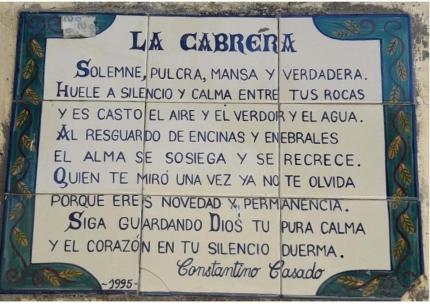 LA CABRERA
SOLEMNE, PULCRA, MANSA Y VERDADERA.
HUELE A SILENCIO Y CALMA ENTRE TUS ROCAS
Y ES CASTO EL AIRE Y EL VERDOR Y EL AGUA.
AL RESGUARDO DE ENCINAS Y ENEBRALES
EL ALMA SE SOSIEGA Y SE RECRECE.
QUIEN TE MIRÓ UNA VEZ YA NO TE OLVIDA
PORQUE ERES NOVEDAD Y PERMANENCIA.
SIGA GUARDANDO DIOS TU PURA CALMA
Y EL CORAZÓN EN TU SILENCIO DUERMA.
Constantino Casado
~1995~